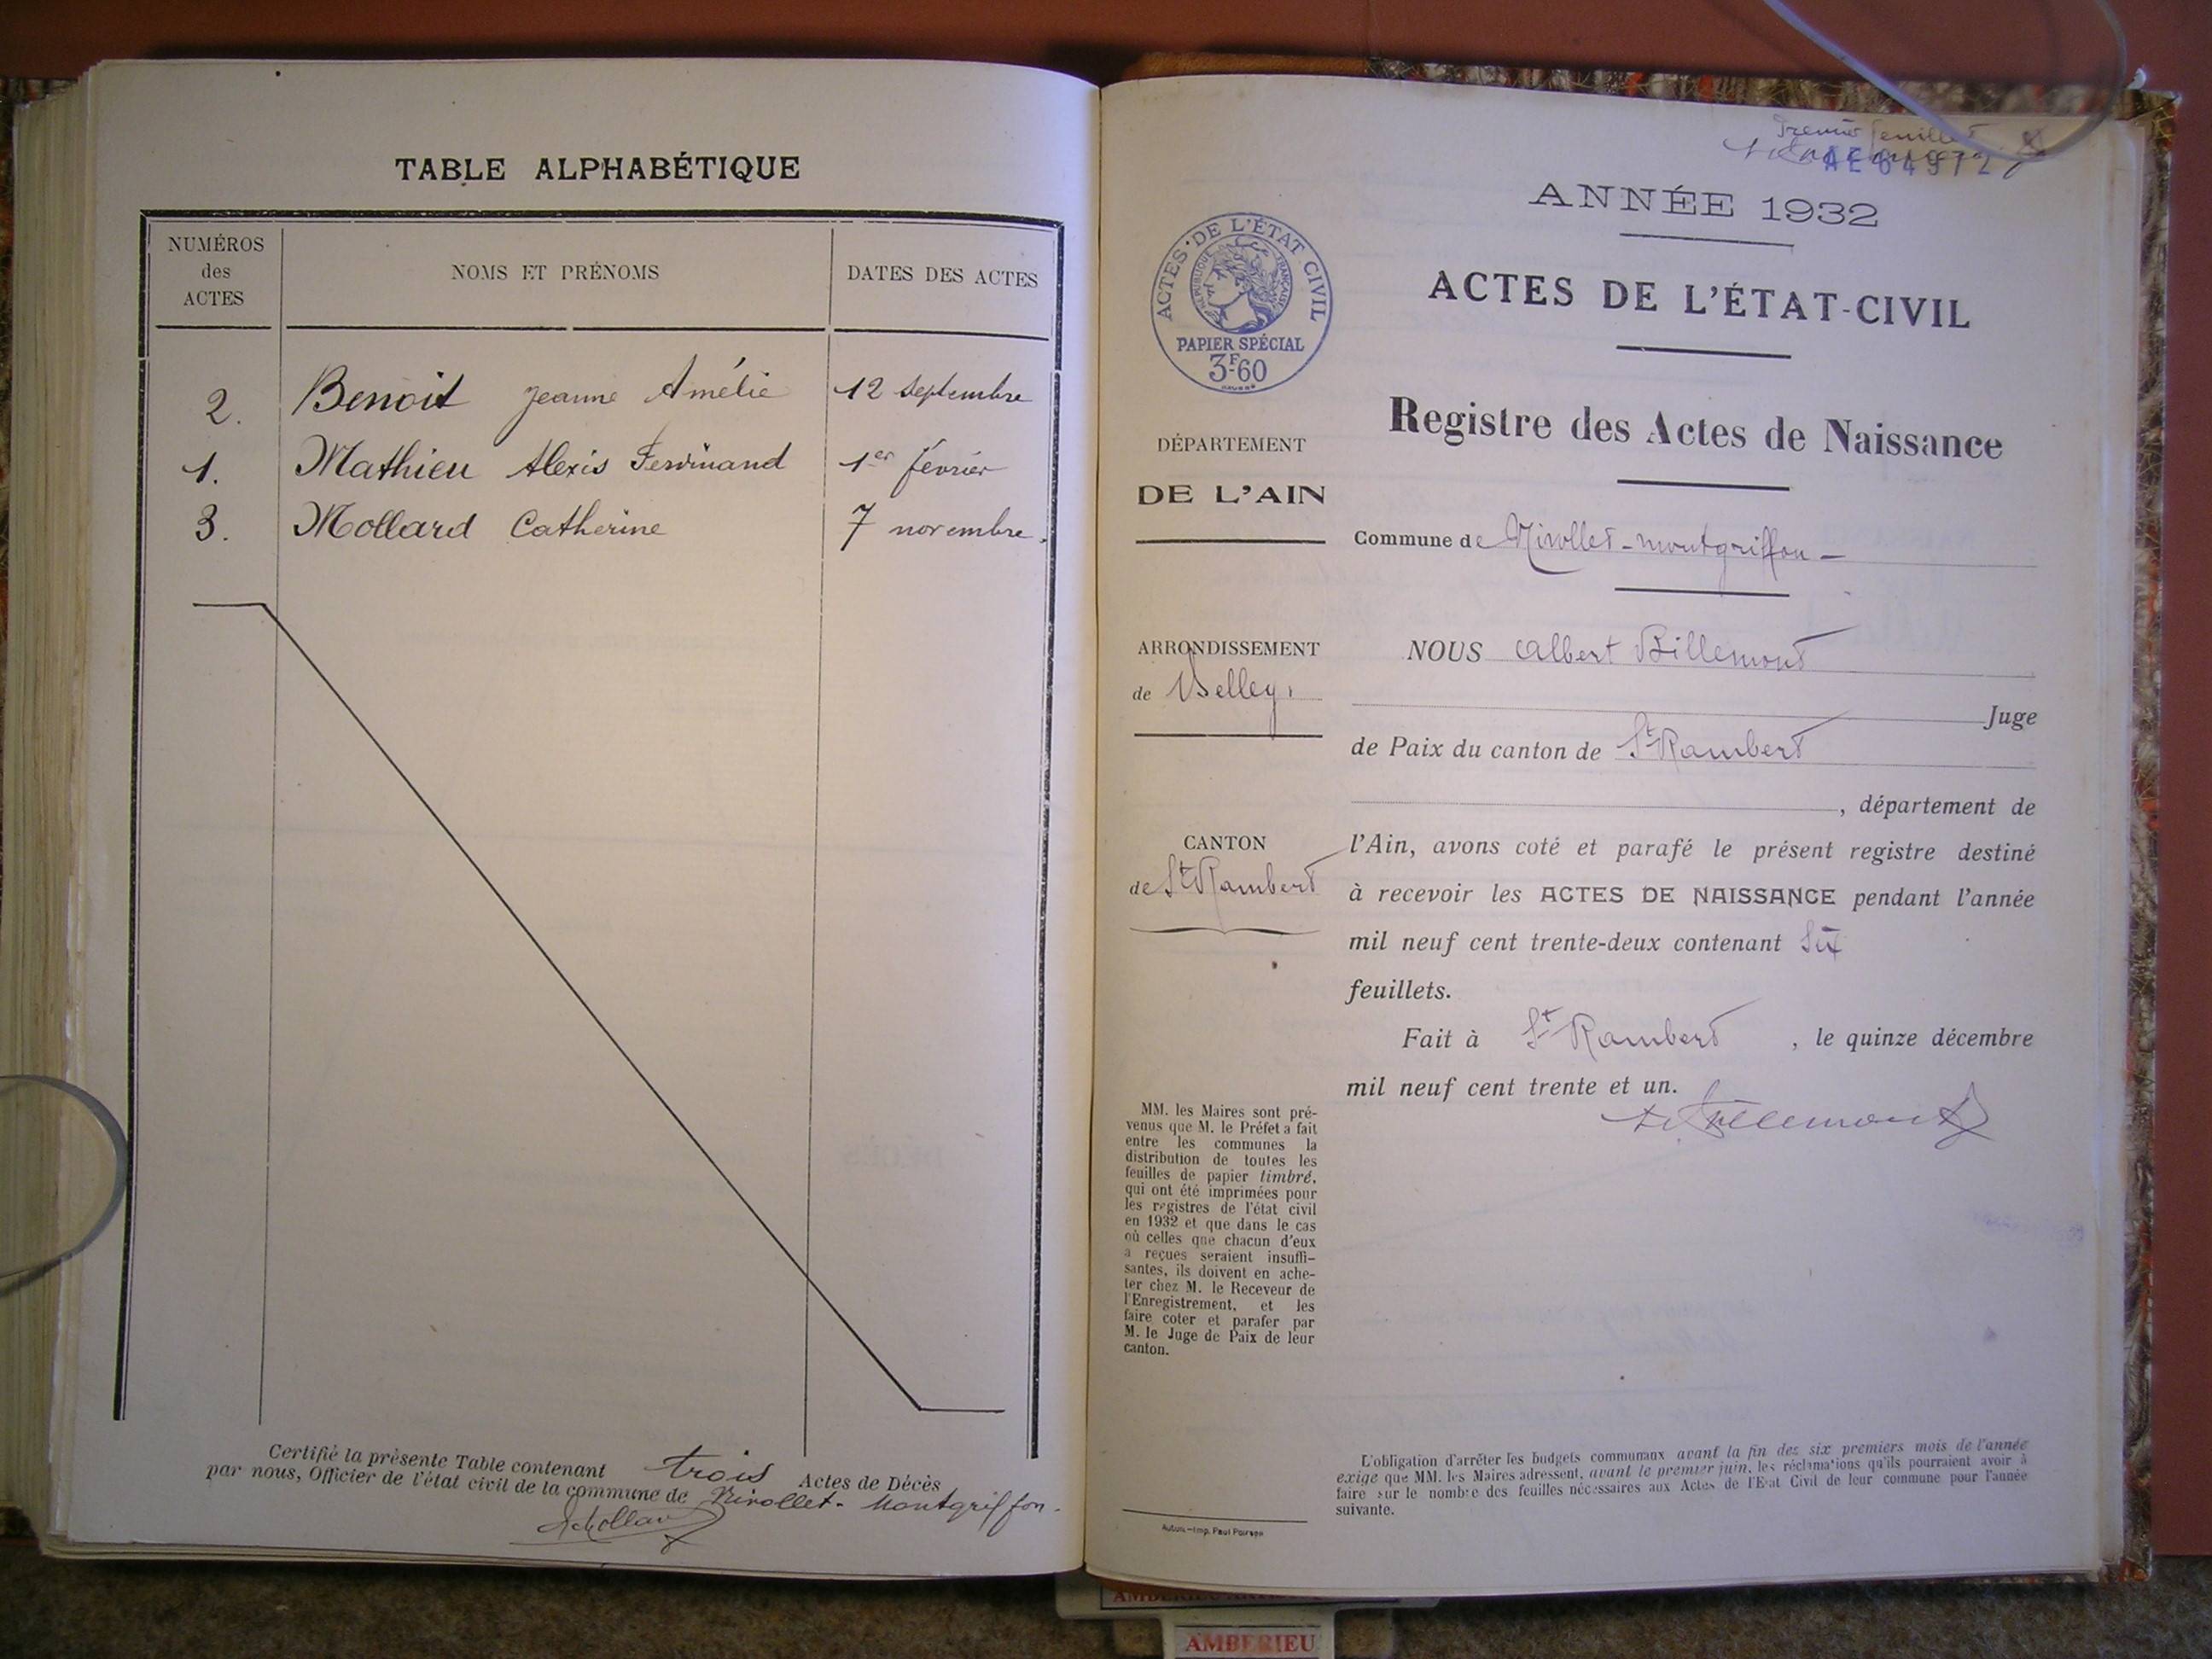 TABLE ALPHABÉTIQUE
NUMÉROS
des
ACTES
NOMS ET PRÉNOMS
DATES DES ACTES
2. Benoit Jeanne Amélie 12 Septembre
1. Mathieu Alexis Ferdinand 1er février
3. Mollard Catherine 7 novembre.
Certifié la présente Table contenant trois Actes de Décès
par nous, Officier de l'état civil de la commune de Nivollet-Montgriffon.
Premier feuillet
ANNÉE 1932
ACTES DE L'ÉTAT CIVIL
RÉPUBLIQUE FRANÇAISE
PAPIER SPÉCIAL
3F60
ACTES DE L'ÉTAT-CIVIL
Registre des Actes de Naissance
DÉPARTEMENT
DE L'AIN
Commune de Nivollet-Montgriffon —
ARRONDISSEMENT
de Belley.
CANTON
de St Rambert
NOUS Albert Billemont
Juge
de Paix du canton de St Rambert
, département de
l'Ain, avons coté et parafé le présent registre destiné
à recevoir les ACTES DE NAISSANCE pendant l'année
mil neuf cent trente-deux contenant Six
feuillets.
Fait à St Rambert, le quinze décembre
mil neuf cent trente et un.
MM. les Maires sont pré-
venus que M. le Préfet a fait
entre les communes la
distribution de toutes les
feuilles de papier timbré,
qui ont été imprimées pour
les registres de l'état civil
en 1932 et que dans le cas
où celles que chacun d'eux
a reçues seraient insuffi-
santes, ils doivent en ache-
ter chez M. le Receveur de
l'Enregistrement, et les
faire coter et parafer par
M. le Juge de Paix de leur
canton.
L'obligation d'arrêter les budgets communaux avant la fin des six premiers mois de l'année
exige que MM. les Maires adressent, avant le premier juin, les réclamations qu'ils pourraient avoir à
faire sur le nombre des feuilles nécessaires aux Actes de l'Etat Civil de leur commune pour l'année
suivante.
AMBERIEU